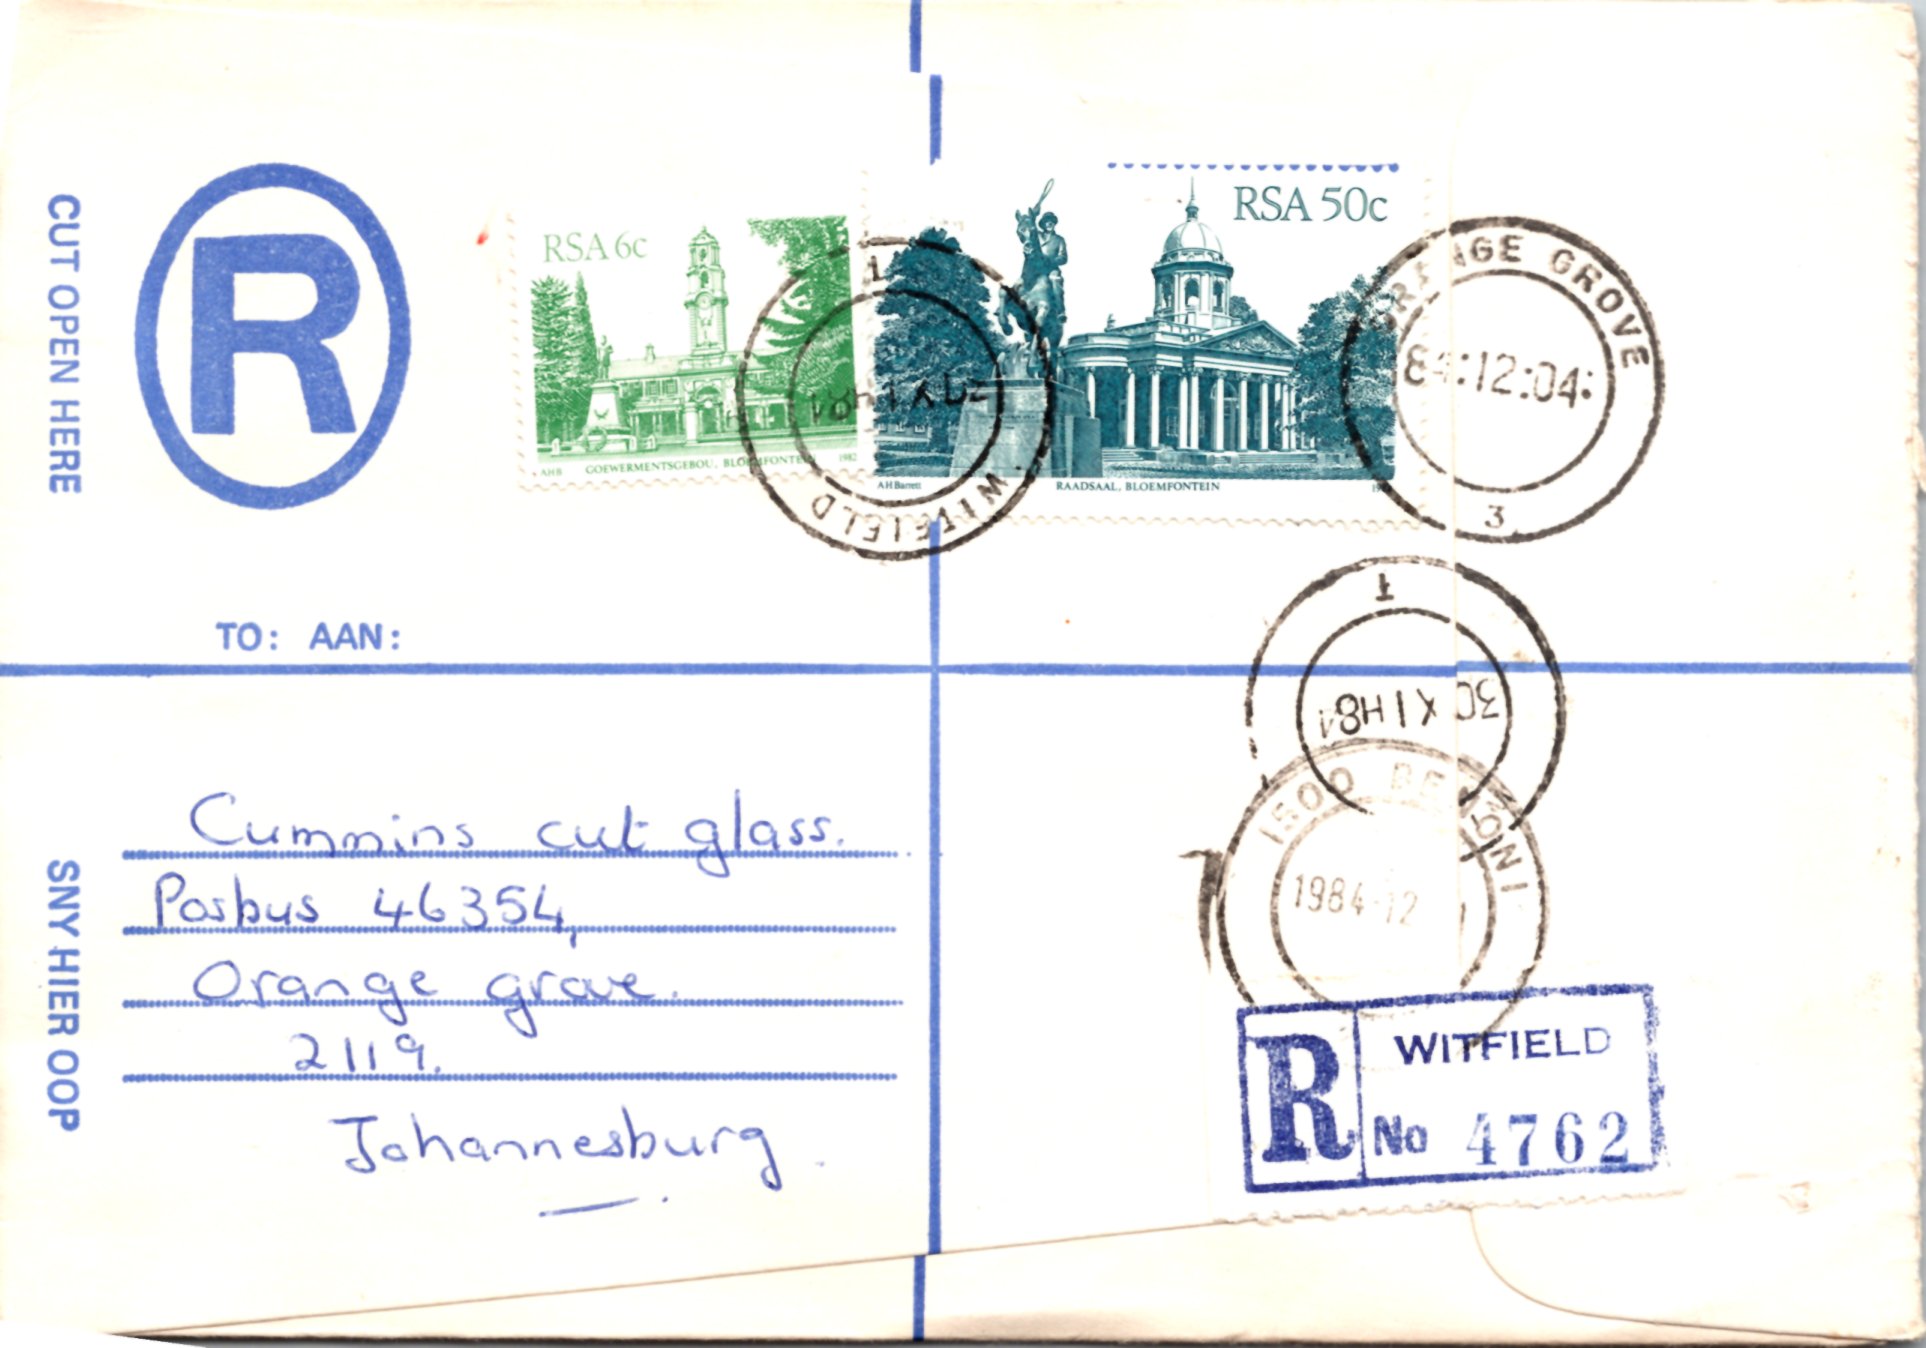 CUT OPEN HERE
R
RSA 6c
AHB GOEWERMENTSGEBOU, BLOEMFONTEIN 1982
RSA 50c
AH Barrett RAADSAAL, BLOEMFONTEIN
1
WITFIELD
ORANGE GROVE
84:12:04:
3
TO: AAN:
1
30 XI H84
1500 BENONI
1984-12
SNY HIER OOP
Cummins cut glass.
Posbus 46354,
Orange grove.
2119.
Johannesburg
R WITFIELD
No 4762